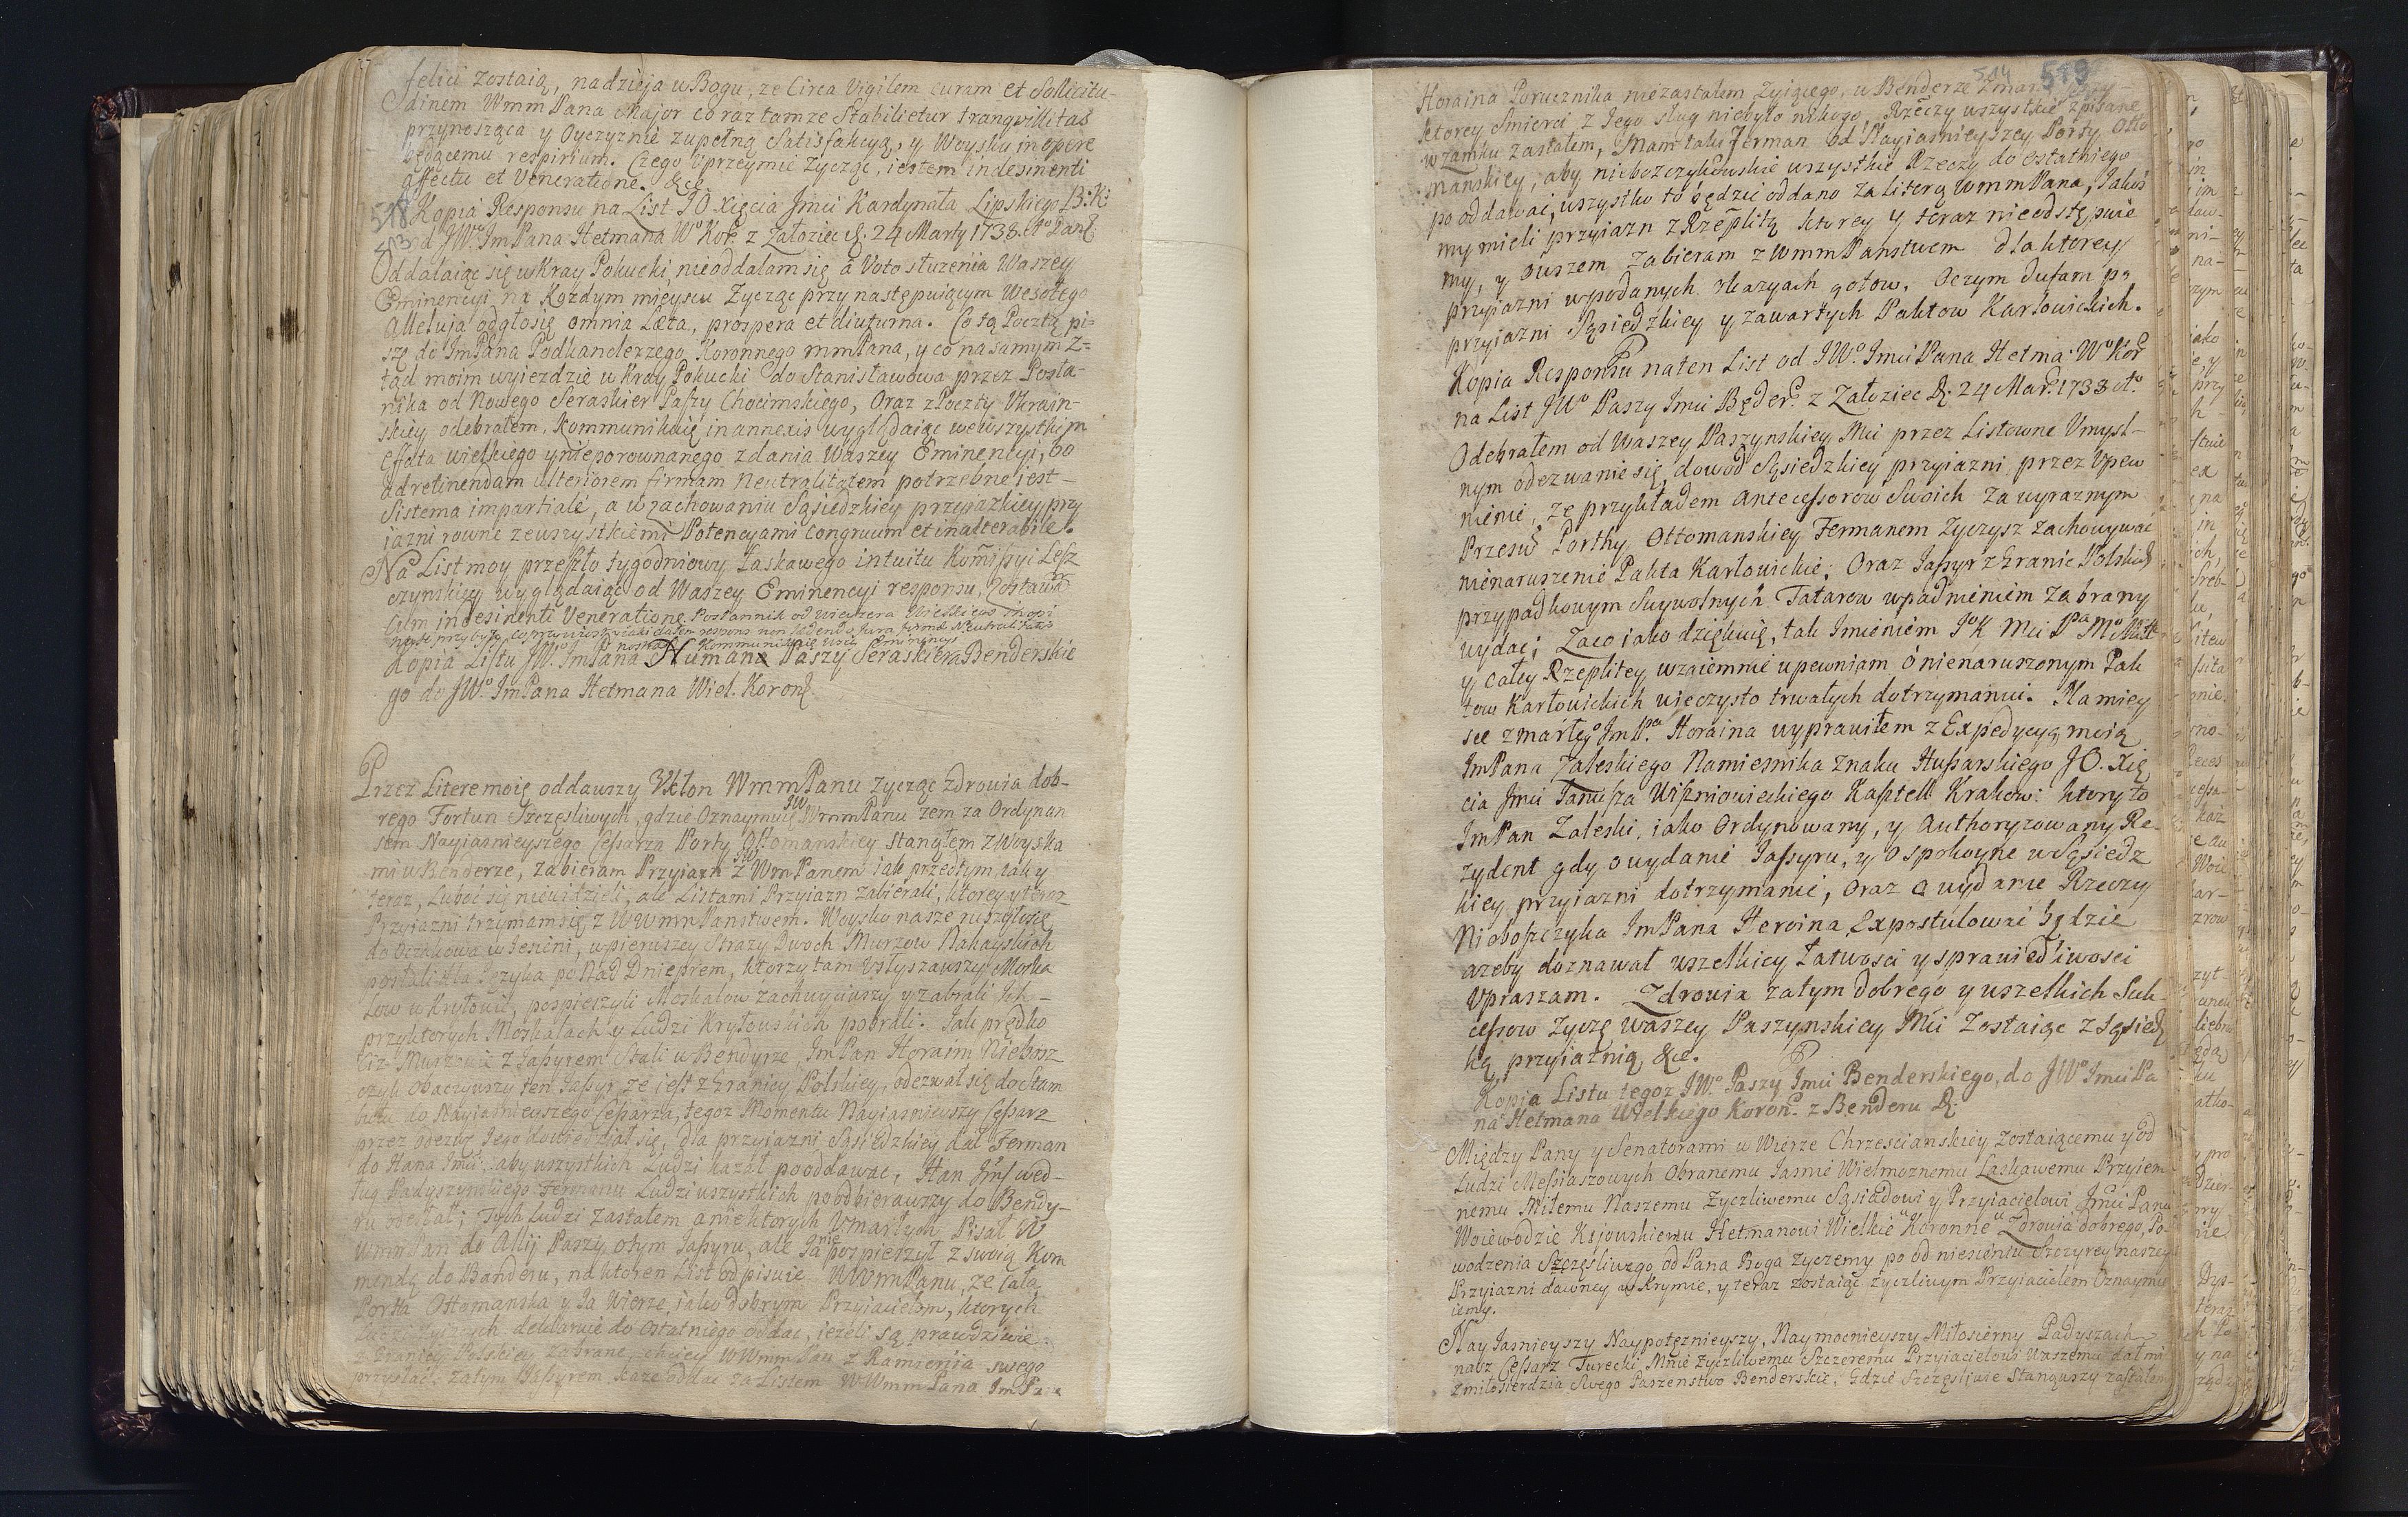 felici zostaią, nadzieja w Bogu, ze Circa Vigilem curam et Sollicitu-
dinem WmmPana Major coraz tamze Stabilietur tranqvillitas
przynosząca y Oyczyznie zupełną Satisfakcyą, y Woysku in opere
będącemu respirium. Czego Vprzeymie zycząc, iestem indesinenti
affectu et Veneratione. &c.
518 Kopia Responsu na List JO Xięcia Jmci Kardynała Lipskiego B: K:
513 od JWo ImPana Hetmana Wo Kor. z Załoziec d. 24 Marty 1738.
Oddalaiąc się w Kray Pokucki nieoddalam się á Voto służenia Waszey
Eminencyi na Kozdym mieyscu Zycząc przy następuiącym Wesołego
Alleluja odgłosię omnia Læta, prospera et diuturna. Co tą Pocztą pi-
szę do ImPana Podkanclerzego Koronnego mmPana, y co na samym z-
tąd moim wyiezdzie w Kray Pokucki do Stanisławowa przez Posła-
nika od Nowego Seraskier Paszy Chocimskiego, Oraz z Poczty Vkrain-
skiey odebrałem, Kommunikuię in annexis wyglądaiąc wewszystkim
Effata wielkiego y nieporownanego zdania Waszey Eminencyi, bo
ad retinendam ulteriorem firmam Neutralitatem potrzebne iest
Sistema impartiale, a w zachowaniu Sąsiedzkiey przyiazkiey przy
iazni rowne zewszystkiemi Potencyami congruum et inalterabile.
Na List moy przeszło tygodniowy łaskawego intuitu Kommissyi Lesz
czynskiey wyglądaiąc od Waszey Eminencyi responsu, Zostawam
Cum indesinenti Veneratione. Posłannik od Wiezera Wielkiego
Kommunikuię Eminencyi
Kopia Listu JW. ImPana Numana Paszy Seraskiera Benderskie
go do JWo ImPana Hetmana Wiel. Koronn.
Przez Litere moię oddawszy Vkłon WmmPanu zycząc zdrowia dob-
rego Fortun Szczęsliwych, gdzie Oznaymuię WmmPanu zem za Ordynan
sem Nayiasnieyszego Cessarza Porty Ottomanskiey stanąłem z Woyska
mi w Benderze, zabieram Przyiazn z WmPanem iak przedtym, tak y
teraz, Luboć się niewidzieli, ale Listami Przyiazn zabierali, ktorey y teraz
Przyiazni trzymam się z WWmmPanstwem. Woysko nasze ruszyło się
do Oczakowa w Jesieni, w pierwszey Strazy Dwoch Murzow Nahayskich
posłali dla Języka po Nad Dnieprem, ktorzy tam Vsłyszawszy Moska
low w Kryłowie, pospieszyli Moskalow zachwyciwszy y zabrali Ich
przy ktorych Moskalach y Ludzi Kryłowskich pobrali. Jak prędko
Ciz Murzowie z Jassyrem Stali w Bendyrze ImPan Horaim Niebosz
czyk obaczywszy ten Jassyr, ze iest z Granicy Polskiey, odezwał się do Stam
bułu do Nayiasnieyszego Cessarza, tegoz Momentu Nayiasnieyszy Cessarz
przez odezwę Jego dowiedział się, dla przyiazni Sąsiedzkiey dał Ferman
do Hana Jmci, aby wszystkich Ludzi kazał pooddawac, Han Jmci wed-
ług Padyszynskiego Fermanu Ludzi wszystkich poodbierawszy do Bendy-
ru odesłał; Tych Ludzi zastałem a niektorych Vmarłych. Pisał W
WmmPan do Allij Paszy o tym Jassyru, ale Ja pospieszył z swoią Kom
mendą do Banderu, na ktoren List odpisuie WWmmPanu, ze cała
Portta Ottomanska y Ja Wierze, iako dobrym Przyiacielom, ktorych
Ludzi zyiących deklaruie do ostatniego oddac, iezeli są prawdziwie
z Granicy Polskiey zabrane, chciey WWmmPan z Ramienia swego
przysłac, zatym Jassyrem kaze oddac za Listem WWmmPana ImPa-
514 519
Horaina Porucznika niezastałem zyiącego, w Benderze
ktorey Smierci z Jego sług niebyło nikogo, Rzeczy wszystkie zpisane
w zamku zastałem, Mam taki Ferman od Nayiasnieyszey Porty Otto
manskiey, aby nieboszczykowskie wszystkie Rzeczy do ostatniego
po oddawać, wszystko to będzie oddano za literą WmmPana, Jakoś
my mieli przyiazn z Rzeplitą ktorey y teraz nieodstępuie
my, y owszem zabieram z WmmPanstwem dla ktorey
przyiazni w podanych okazyach gotow. Oczym dufam po
przyiazni Sąsiedzkiey y zawartych Paktow Karłowickich.
Kopia Responsu na ten List od JWo Jmci Pana Hetma: Wo Kor
na List JWo Paszy Jmci Będer. z Załoziec d. 24 Mar. 1738 Ao
Odebrałem od Waszey Paszynskiey Mci przez Listowne Vmysl-
nym odezwanie się, dowod Sąsiedzkiey przyiazni przez Vpew
nienie, ze przykładem Antecessorow Swoich za wyraznym
Przesw. Porthy Ottomanskiey Fermanem Zyczysz zachowywać
nienaruszenie Pakta Karłowickie; Oraz Jassyr z Granic Polskich
przypadkowym Swywolnych Tatarow wpadnieniem zabrany
wydać; Zaco iako dziękuię, tak Imieniem JoK Mci Pa Mo Miłł
y całey Rzeplitey wzaiemnie upewniam o nienaruszonym Pak
tow Karłowickich wieczysto trwałych dotrzymaniu. Na miey
sce zmarłego Jm Pa Horaina wyprawiłem z Expedycyą moią
ImPana Zaleskiego Namiesnika znaku Hussarskiego JO. Xię
cia Jmci Janusza Wiszniowieckiego Kasztell Krakow: ktory to
ImPan Zaleski, iako Ordynowany, y Authoryzowany Re-
zydent gdy o wydanie Jassyru, y o spokoyne w Sąsiedz
kiey przyiazni dotrzymanie, oraz o wydanie Rzeczy
Nieboszczyka ImPana Heroina Expostulować będzie
azeby doznawał wszelkiey Łatwosci y sprawiedliwosci
Vpraszam. Zdrowia zatym dobrego y wszelkich Suk-
cessow Zyczę Waszey Paszynskiey Mći zostaiąc z Sąsiedz
ką przyiaznią, &c.
Kopia Listu tegoz JWo Paszy Jmci Benderskiego, do JWo Jmci Pa
na Hetmana Wielkiego Koron. z Benderu d.
Między Pany y Senatorami w Wierze Chrzescianskiey zostaiącemu y od
Ludzi Messiaszowych Obranemu Jasnie Wielmoznemu Laskawemu Przyiem
nemu Miłemu Naszemu Zyczliwemu Sąsiadowi y Przyiacielowi Jmci Panu
Woiewodzie Kijowskiemu Hetmanowi Wielkie Koronne Zdrowia dobrego, Po-
wodzenia Szczęsliwego od Pana Boga Zyczemy po odniesieniu Szczyrey naszey
Przyiazni dawney w Krymie, y teraz zostaiąc zyczliwym Przyiacielem Oznaymu
iemy.
Nay Jasnieyszy Naypotęznieyszy, Naymocnieyszy Miłosierny Padyszach
nasz Cessarz Turecki Mnie zyczliwemu Szczeremu Przyiacielowi Waszemu dał mi
z miłosierdzia Swego Paszenstwo Benderskie, Gdzie Szczęsliwie Stanąwszy zastałem